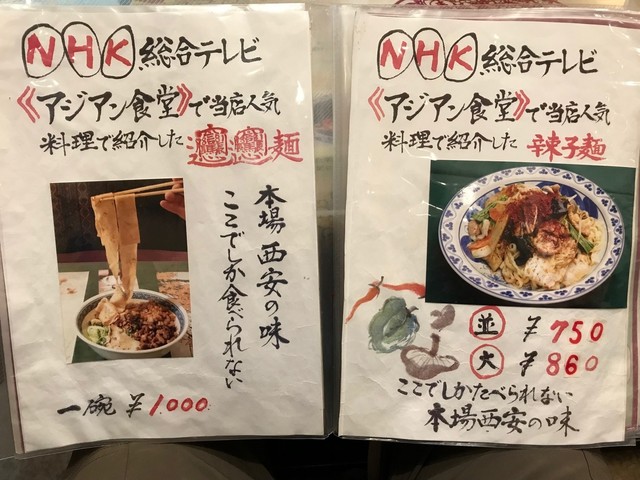 NHK 総合テレビ
《アジアン食堂》で当店人気
料理で紹介した𰻞𰻞麺
本場西安の味
ここでしか食べられない
一碗 ¥1,000
NHK 総合テレビ
《アジアン食堂》で当店人気
料理で紹介した 辣子麺
並 ¥750
大 ¥860
ここでしかたべられない
本場西安の味